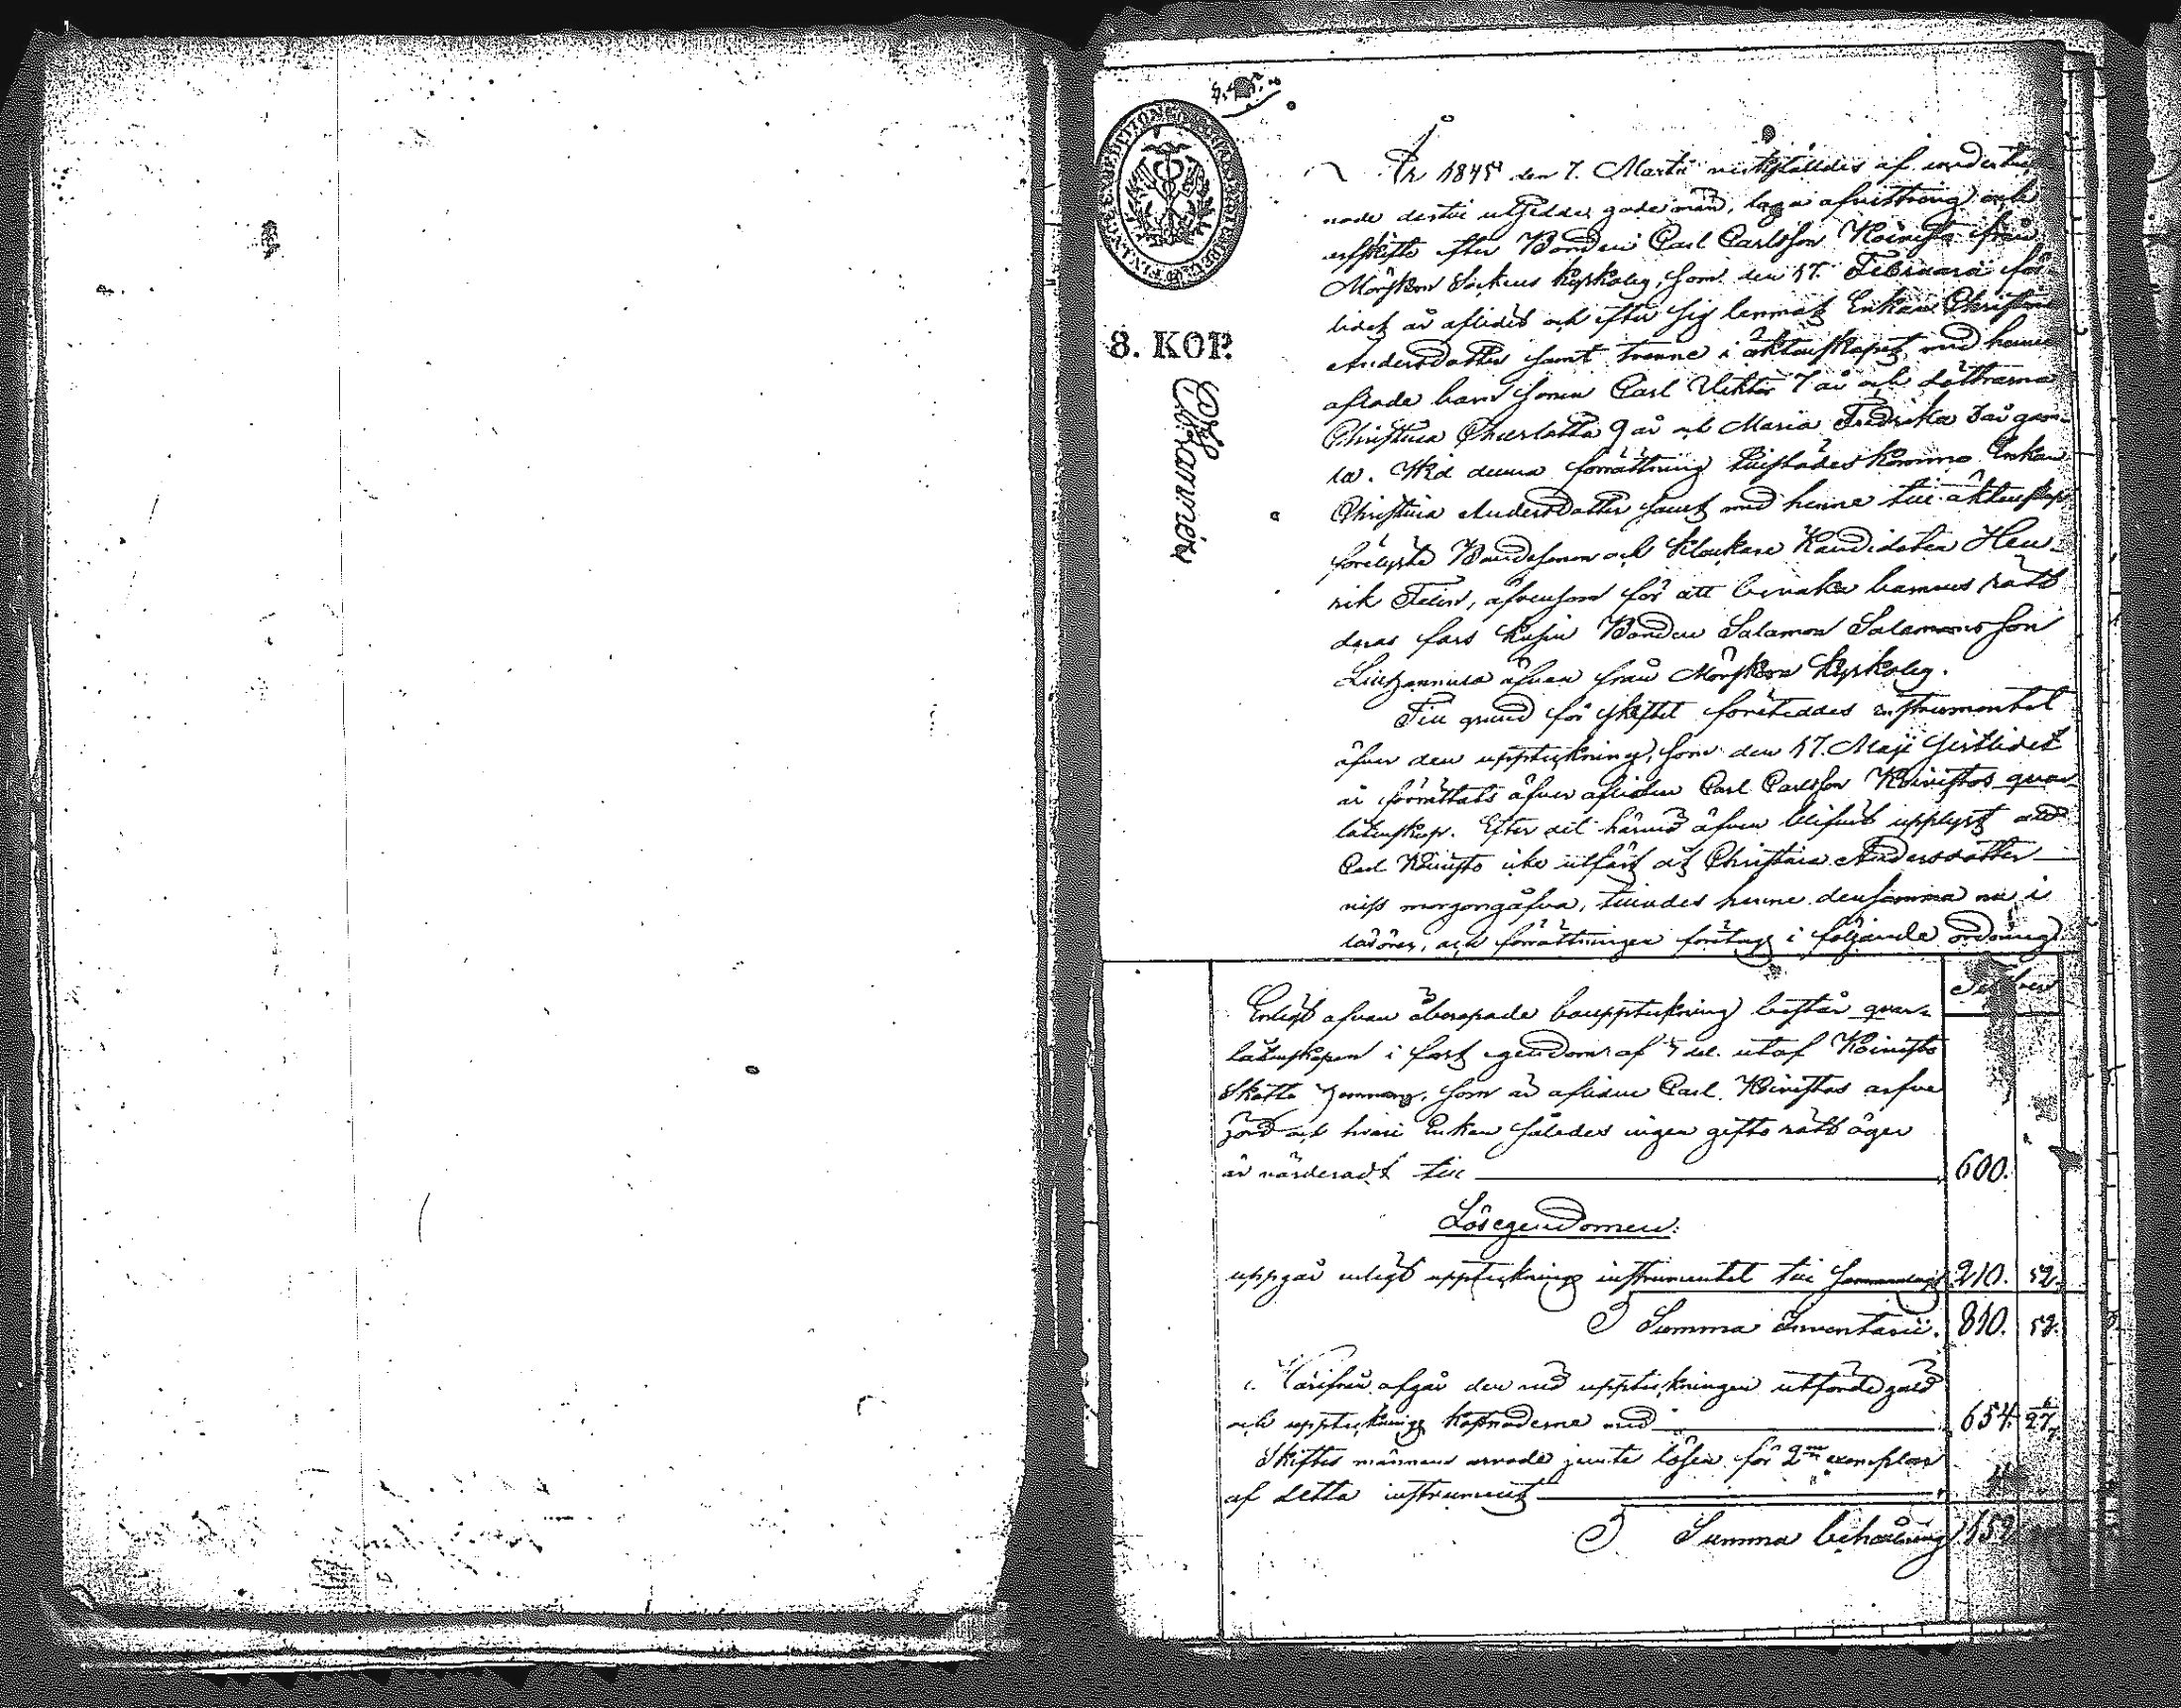 År 1845 den 7. Martii verkställdes af underteck
nade dertill utsedde gode män, laga afvittring och
arfskifte efter Bonden Carl Carlsson Koivisto från
Mörskom Sockens kyrkoby, som den 17. Februarii för
lidet år aflidit och efter sig lemnat Enkan Christina
Andersdotter samt trenne i äktenskapet med henne
aflade barn sonen Carl Viktor 7 år och döttrarna
Christina Charlotta 9 år och Maria Fredrika 3 år gam-
la. Wid denna förrättning tillstädes kommo Enkan
Christina Andersdotter samt med henne till äktenskap
förelyste Bondesonen och Klockare Kandidaten Hen-
rik Felin, äfvensom för att bevaka barnens rätt
deras fars kusin Bonden Salamon Salamonsson
äfven från Mörskom kyrkoby.
Till grund för skiftet företeddes instrumentet
öfver den uppteckning, som den 17. Maji sistlidet
år förrättats öfver aflidne Carl Carlsson Koivistos qvar-
låtenskap. Efter det härvid äfven blifvit upplyst att
Carl Koivisto icke utfäst åt Christina Andersdotter
viss morgongåfva, henne densamma nu i
lösören, och förrättningen företogs i följande ordning
8. KOP.
Enligt ofvan åberopade bouppteckning består qvar-
låtenskapen i fast egendom af del. utaf Koivisto
Skatte hemman, som är aflidne Carl Koivistos arfve
jord och hvari Enkan således ingen giftorätt äger
är värderadt till 600.
Lösegendomen:
uppgår enligt uppteckningsinstrumentet till sammanlagt 210. 52.
Summa Inventarii. 810. 52.
Härifrån afgår den vid uppteckningen utförde gäld
och uppteckningskostnaderne med 654. 27
Skiftes männens arvode jemte lösen för 2ne exemplar
af detta instrument
Summa behållning